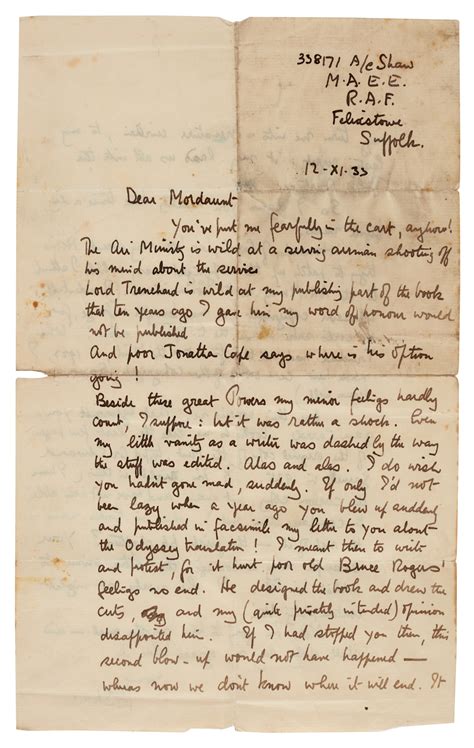 338171 A/c Shaw
M.A.E.E.
R.A.F.
Felixstowe
Suffolk.
12-XI-33
Dear Mordaunt
You've put me fearfully in the cart, anyhow!
The Air Ministry is wild at a serving airman shooting off
his mind about the service
Lord Trenchard is wild at my publishing part of the book
that ten years ago I gave him my word of honour would
not be published
And poor Jonathan Cape says where is his option
going!
Beside these great Powers my minor feelings hardly
count, I suppose: but it was rather a shock. Even
my little vanity as a writer was dashed by the way
the stuff was edited. Alas and alas. I do wish
you hadn't gone mad, suddenly. If only I'd not
been lazy when a year ago you blew up suddenly
and published in facsimile my letter to you about
the Odyssey translation! I meant then to write
and protest, for it hurt poor old Bruce Rogers'
feelings no end. He designed the book and drew the
cuts, and my (quite privately intended) opinion
disappointed him. If I had stopped you then, this
second blow-up would not have happened —
whereas now we don't know where it will end. It